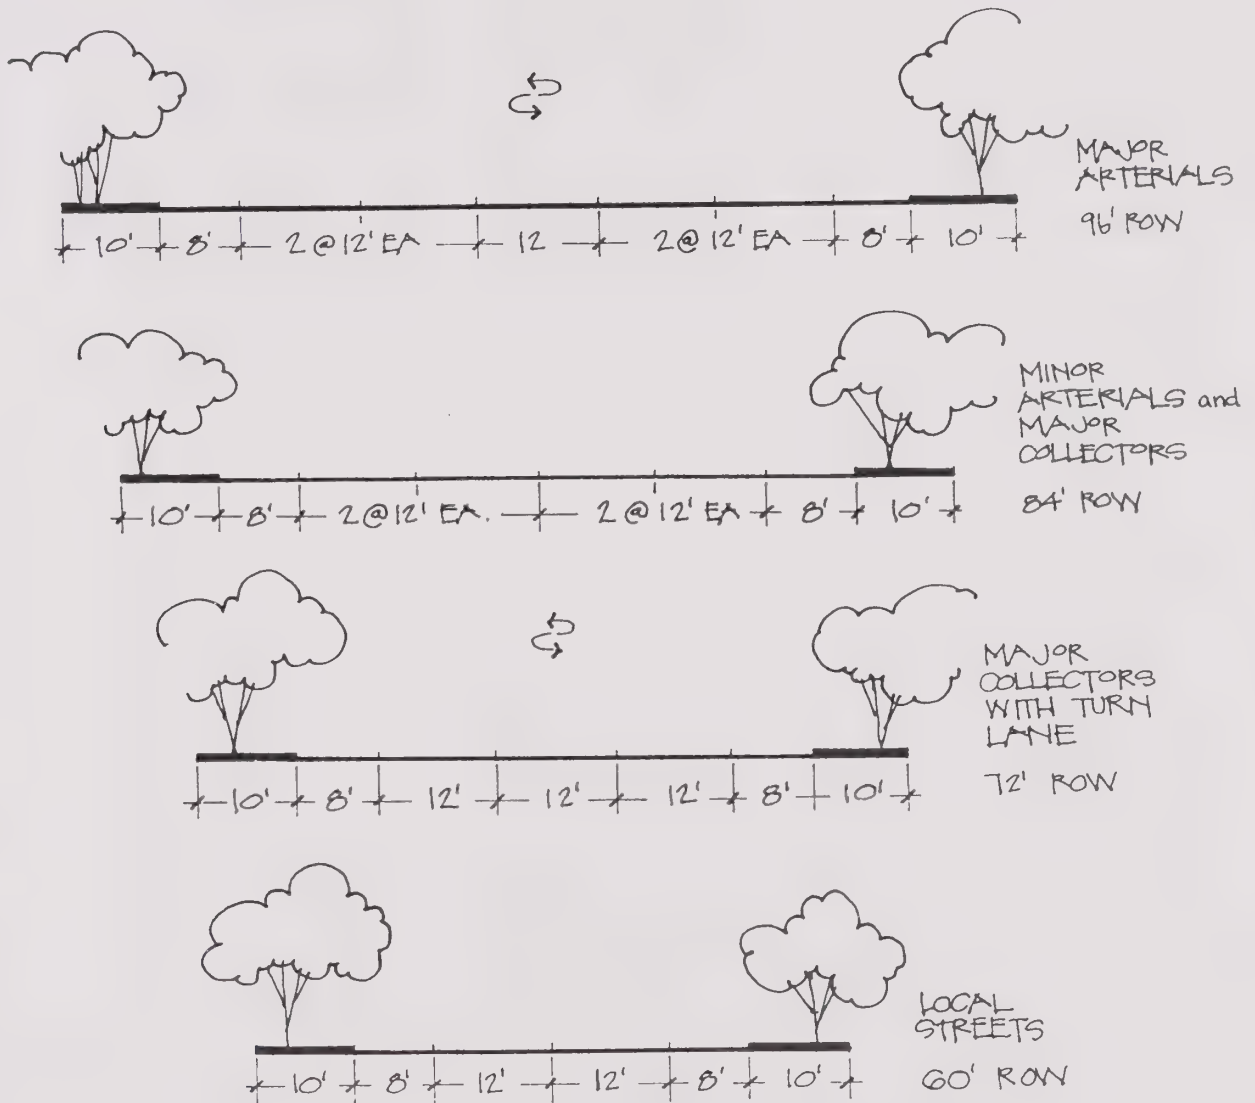 MAJOR
ARTERIALS
96' ROW
10' 8' 2 @ 12' EA 12 2 @ 12' EA 8' 10'
MINOR
ARTERIALS and
MAJOR
COLLECTORS
84' ROW
10' 8' 2 @ 12' EA. 2 @ 12' EA 8' 10'
MAJOR
COLLECTORS
WITH TURN
LANE
72' ROW
10' 8' 12' 12' 12' 8' 10'
LOCAL
STREETS
60' ROW
10' 8' 12' 12' 8' 10'